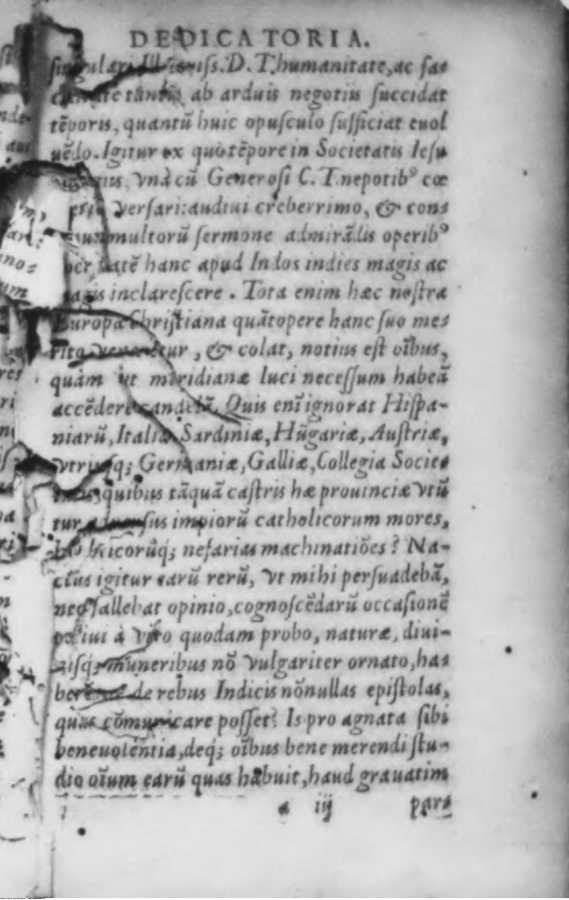 DEDICATORIA.
singulari Illustriss. D. T. humanitate, ac fa-
ab arduis negotiis succidat
tẽporis, quantũ huic opusculo sufficiat euol
uẽdo. Igitur ex quo tẽpore in Societatis Iesu
vnà cũ Generosi C. T. nepotibꝰ cœ
versari: audiui creberrimo, & cons
multorũ sermone admirãlis operibꝰ
hanc apud Indos indies magis ac
magis inclarescere. Tota enim hæc nostra
Europa Christiana quãtopere hanc suo me-
rito veneretur, & colat, notius est oĩbus,
quàm ut meridianæ luci necessum habeã
accẽdere candelã. Quis enĩ ignorat Hispa-
niarũ, Italiæ, Sardiniæ, Hũgariæ, Austriæ,
vtriusq; Germaniæ, Galliæ, Collegia Socie-
tatis, quibus tãquã castris hæ prouinciæ vtũ
tur aduersus impiorũ catholicorum mores,
nefarias machinatiões? Na-
ctus igitur earũ rerũ, vt mihi persuadebã,
neq; fallebat opinio, cognoscẽdarũ occasionẽ
à viro quodam probo, naturæ, diui-
nisq; muneribus nõ vulgariter ornato, ha-
de rebus Indicis nõnullas epistolas,
quas cõmunicare posset? Is pro agnata sibi
beneuolentia, deq; oĩbus bene merendi stu-
dio oĩum earũ quas habuit, haud grauatim
a iij pars